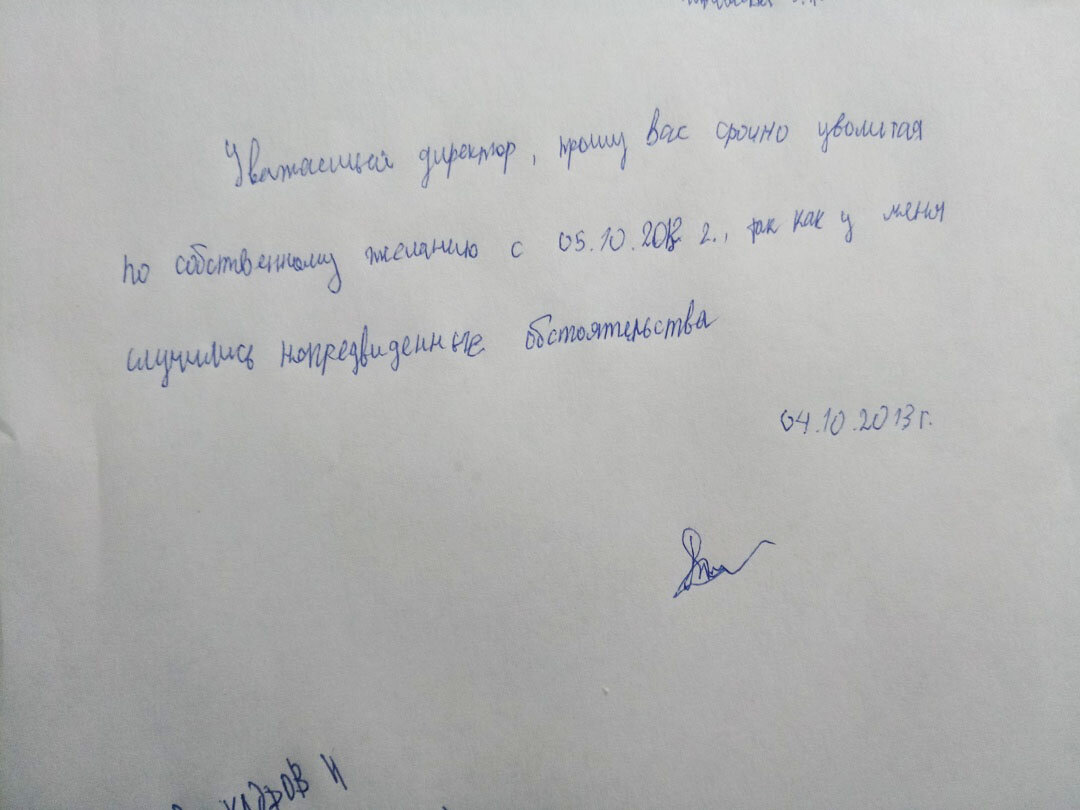 Уважаемый директор, прошу вас срочно уволится
по собственному желанию с 05.10.2013 г., так как у меня
случились нопредвиденные обстоятельства
04.10.2013 г.
кадров и